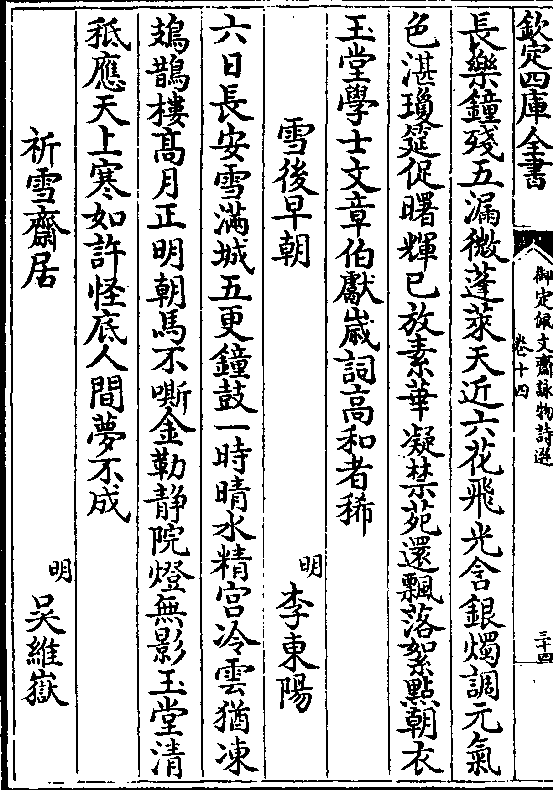 欽定四庫全書
御定佩文齋詠物詩選
卷十四
三十四
長樂鐘殘五漏微蓬萊天近六花飛光含銀燭調元氣
色湛瓊筵促曙輝已放素華凝禁苑還飄落絮點朝衣
玉堂學士文章伯獻歲詞高和者稀
雪後早朝
明 李東陽
六日長安雪滿城五更鐘鼓一時晴水精宫冷雲猶凍
鳷鵲樓髙月正明朝馬不嘶金勒静院燈無影玉堂清
秪應天上寒如許怪底人間夢不成
祈雪齋居
明 吴維嶽